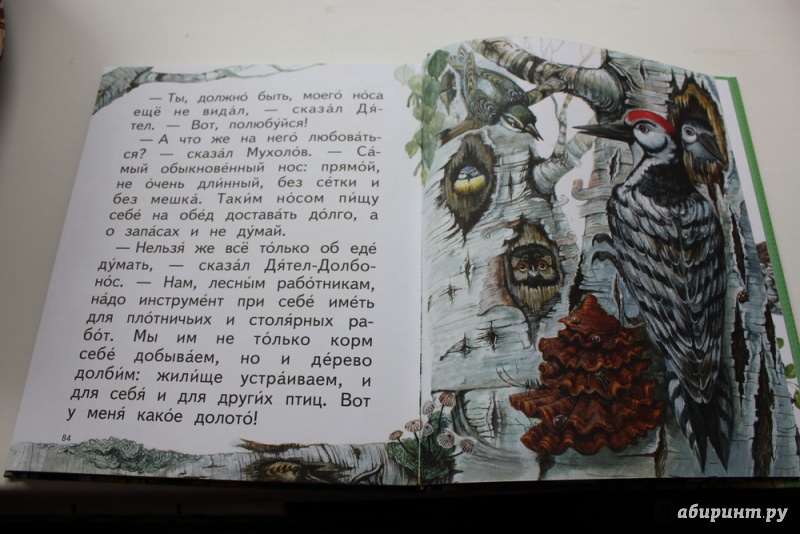 — Ты, должно́ быть, моего́ но́са
ещё не вида́л, — сказа́л Дя́-
тел. — Вот, полюбу́йся!
— А что же на него́ любова́ть-
ся? — сказа́л Мухоло́в. — Са́-
мый обыкнове́нный нос: прямо́й,
не о́чень дли́нный, без се́тки и
без мешка́. Таки́м но́сом пи́щу
себе́ на обе́д достава́ть до́лго, а
о запа́сах и не ду́май.
— Нельзя́ же всё то́лько об еде́
ду́мать, — сказа́л Дя́тел-Долбо-
но́с. — Нам, лесны́м рабо́тникам,
на́до инструме́нт при себе́ име́ть
для пло́тничьих и столя́рных ра-
бо́т. Мы им не то́лько корм
себе́ добыва́ем, но и де́рево
долби́м: жили́ще устра́иваем, и
для себя́ и для други́х птиц. Вот
у меня́ како́е долото́!
84
лабиринт.ру